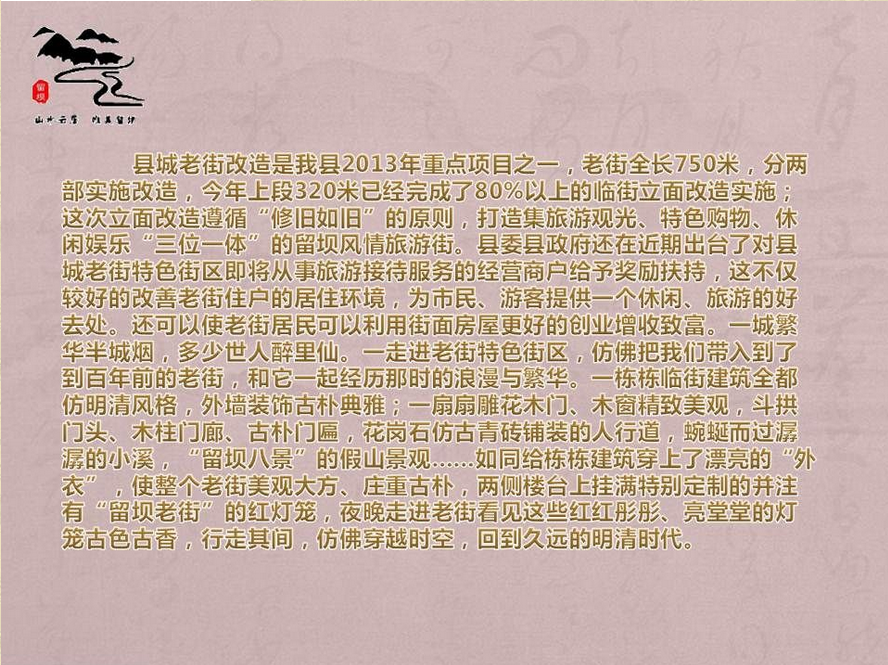 留坝
山水云居 惟美留坝
县城老街改造是我县2013年重点项目之一，老街全长750米，分两
部实施改造，今年上段320米已经完成了80%以上的临街立面改造实施；
这次立面改造遵循“修旧如旧”的原则，打造集旅游观光、特色购物、休
闲娱乐“三位一体”的留坝风情旅游街。县委县政府还在近期出台了对县
城老街特色街区即将从事旅游接待服务的经营商户给予奖励扶持，这不仅
较好的改善老街住户的居住环境，为市民、游客提供一个休闲、旅游的好
去处。还可以使老街居民可以利用街面房屋更好的创业增收致富。一城繁
华半城烟，多少世人醉里仙。一走进老街特色街区，仿佛把我们带入到了
到百年前的老街，和它一起经历那时的浪漫与繁华。一栋栋临街建筑全都
仿明清风格，外墙装饰古朴典雅；一扇扇雕花木门、木窗精致美观，斗拱
门头、木柱门廊、古朴门匾，花岗石仿古青砖铺装的人行道，蜿蜒而过潺
潺的小溪，“留坝八景”的假山景观……如同给栋栋建筑穿上了漂亮的“外
衣”，使整个老街美观大方、庄重古朴，两侧楼台上挂满特别定制的并注
有“留坝老街”的红灯笼，夜晚走进老街看见这些红红彤彤、亮堂堂的灯
笼古色古香，行走其间，仿佛穿越时空，回到久远的明清时代。